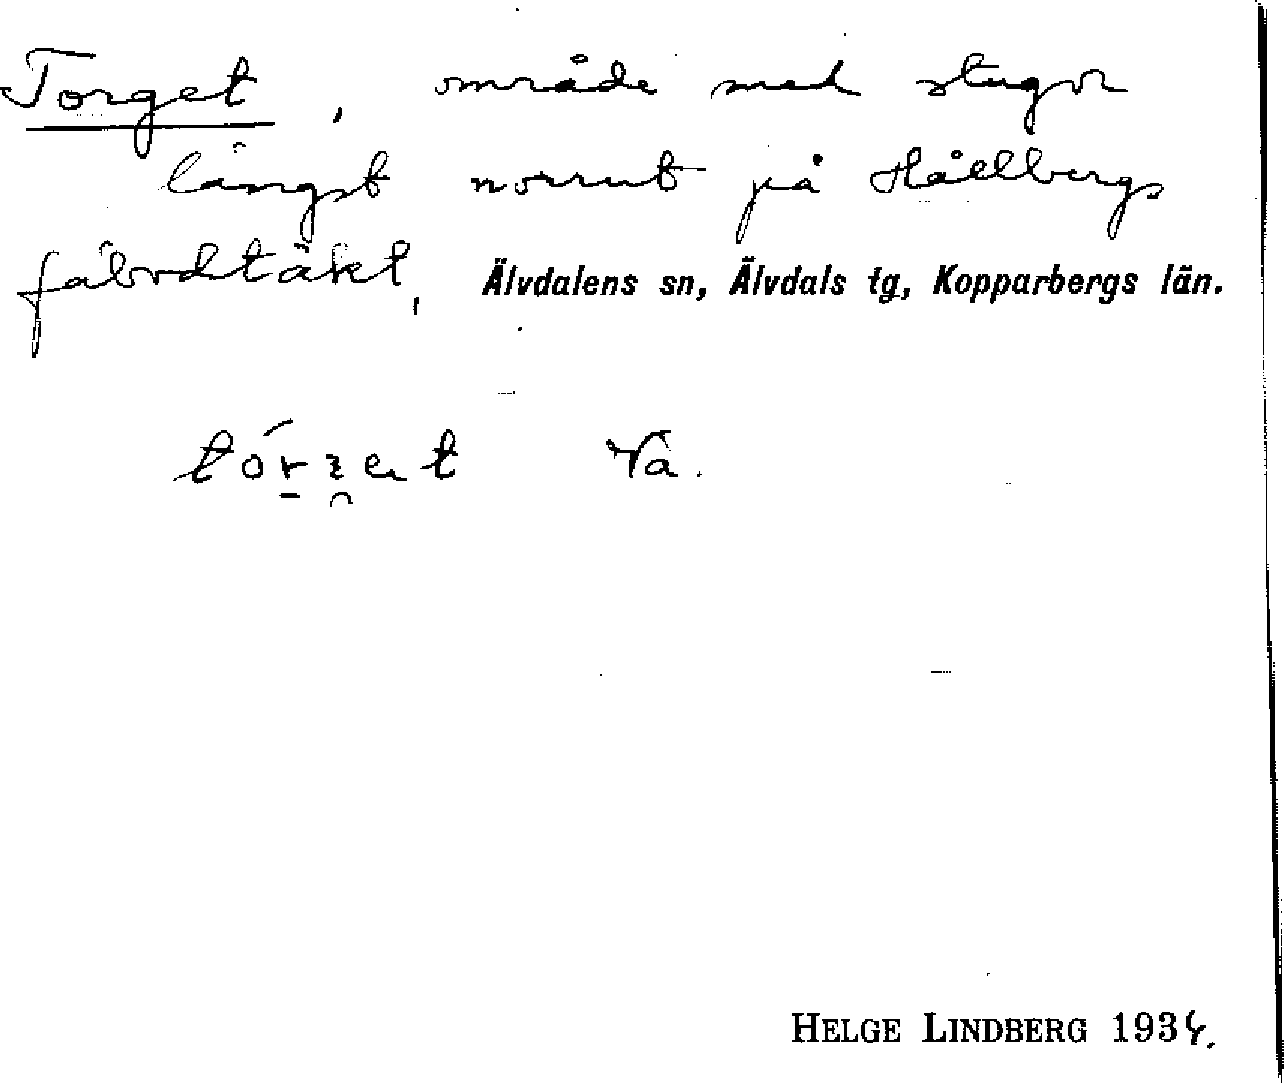 Torget, område med stugor
längst norrut på Hållbergs
fäbodtäkt, Älvdalens sn, Älvdals tg, Kopparbergs län.
Va.
HELGE LINDBERG 1934.